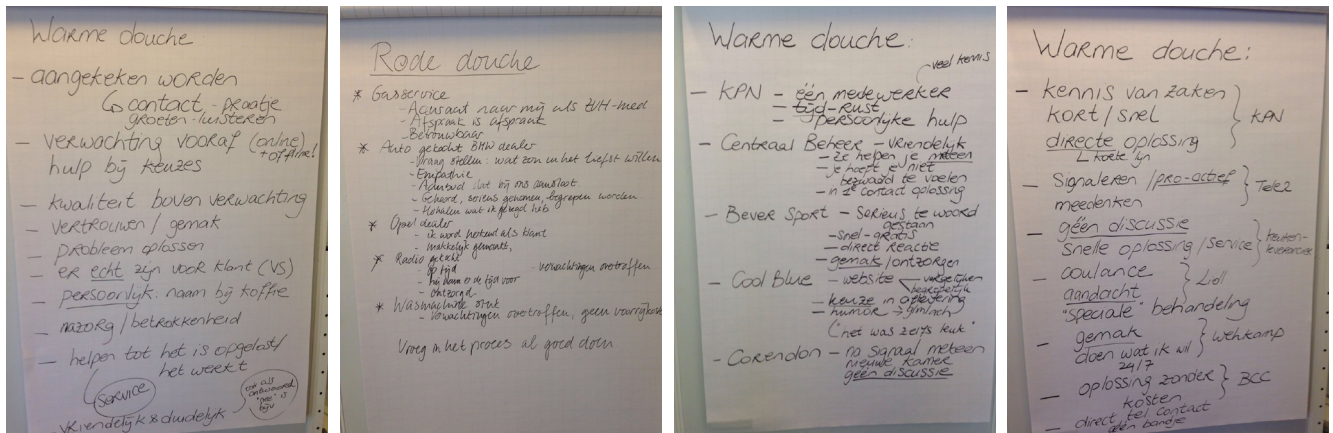 Warme douche:
- aangekeken worden
↳ contact - praatje
groeten - luisteren
- verwachting vooraf (online)
+ offline!
hulp bij keuzes
- kwaliteit boven verwachting
- vertrouwen / gemak
- probleem oplossen
- er echt zijn voor klant (VS)
- persoonlijk: naam bij koffie
- nazorg / betrokkenheid
- helpen tot het is opgelost /
het werkt
SERVICE
ook als
antwoord
"nee" is
bijv
vriendelijk & duidelijk
Rode douche
* Gasservice
- Accuraat naar mij als
- Afspraak is afspraak
- Betrouwbaar
* Auto gekocht BMW dealer
- Vraag stellen: wat zou u het liefst willen
- Empathie
- Aanbod dat bij ons aansloot
- Gehoord, serieus genomen, begrepen worden
- Herhalen wat ik gezegd heb
* Opel dealer
- ik word herkend als klant
- makkelijk gemaakt,
* Radio
- op tijd
- verwachtingen overtroffen
- ontzorgd
* Wasmachine stuk
- Verwachtingen overtroffen, geen voorrijkosten
Vroeg in het proces al goed doen
Warme douche:
veel kennis
- KPN - één medewerker
- tijd - rust
- persoonlijke hulp
- Centraal Beheer - vriendelijk
- ze helpen je meteen
- je hoeft je niet
bezwaard te voelen
- in 1e contact oplossing
- Bever Sport - serieus te woord
gestaan
- snel - gratis
- direct reactie
- gemak / ontzorgen
- Cool Blue - website
vergelijken
begrijpelijk
- keuze in aflevering
- humor → glimlach
("het was zelfs leuk")
- Corendon - na signaal meteen
nieuwe kamer
geen discussie
Warme douche:
- kennis van zaken
kort / snel
directe oplossing
KPN
↳ korte lijn
- Signaleren / pro-actief
meedenken
Tele2
- géén discussie
snelle oplossing / service
keuken-
leverancier
- coulance
aandacht
Lidl
"speciale" behandeling
- gemak
doen wat ik wil
24/7
wehkamp
- oplossing zonder
kosten
BCC
- direct tel. contact
géén bandje